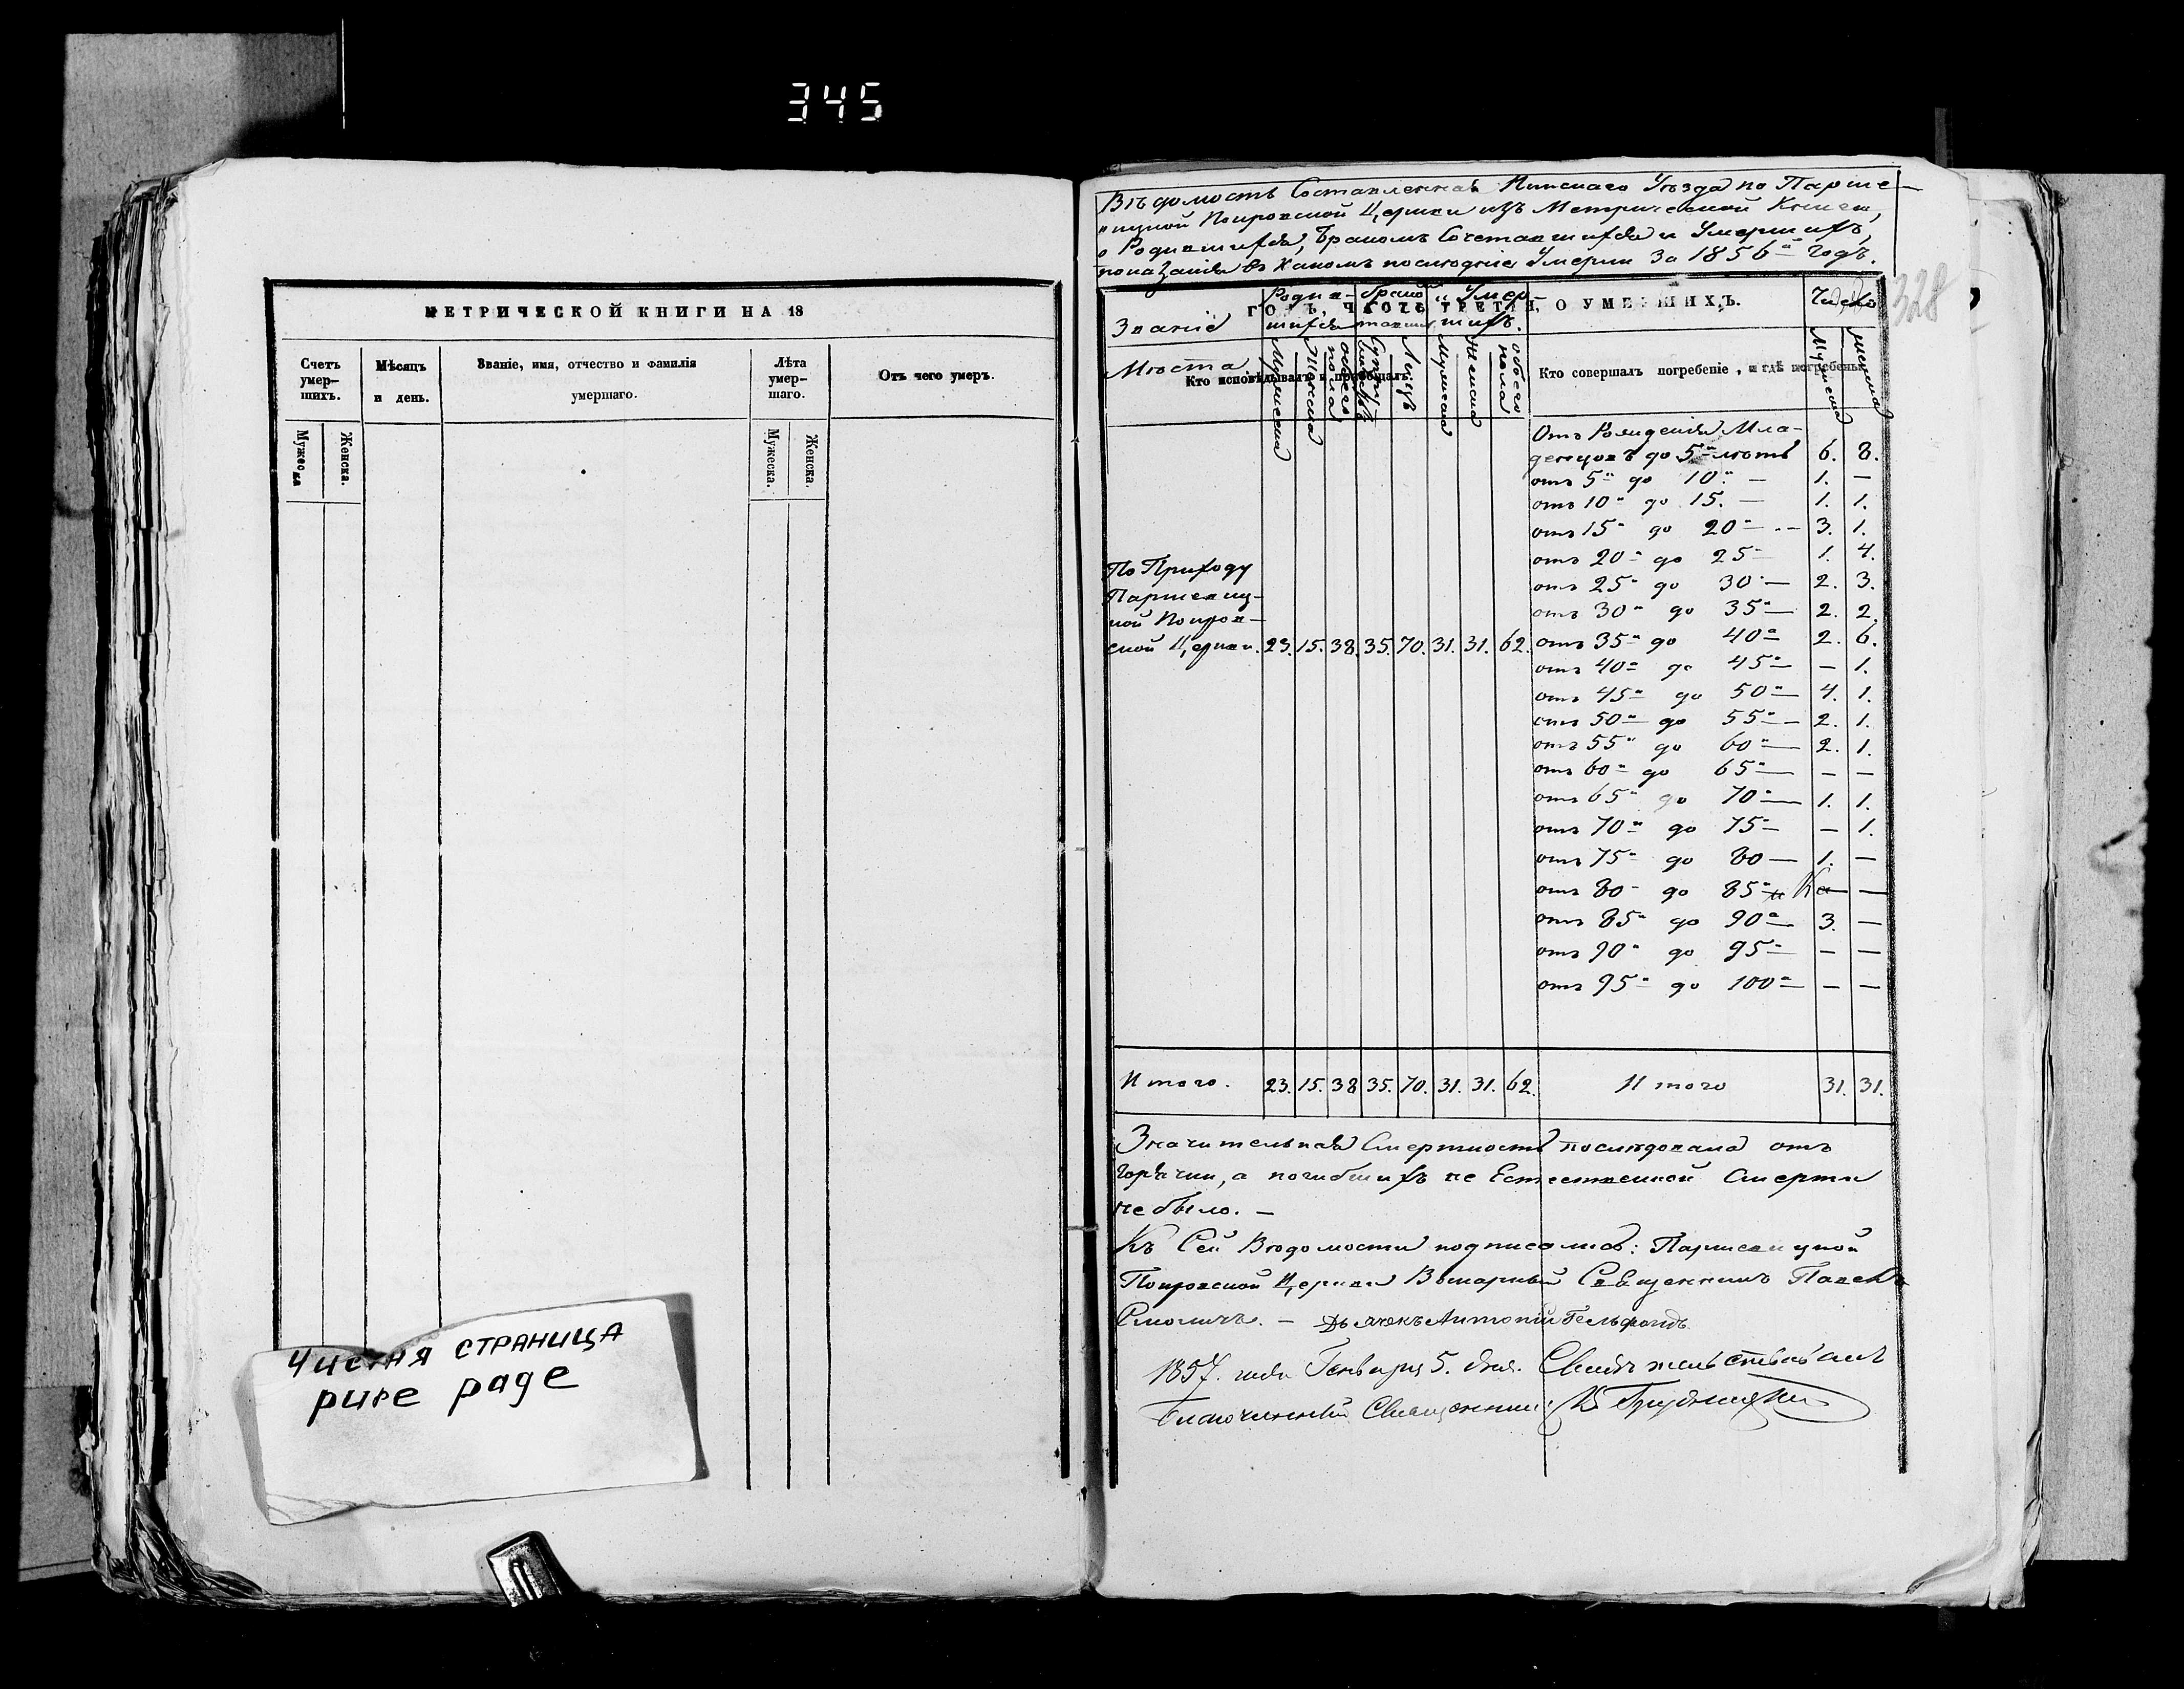 345
МЕТРИЧЕСКОЙ КНИГИ НА 18
Счетъ умерших.
Мѣсяцъ и день.
Званіе, имя, отчество и фамилія умершаго.
Лѣта умершаго.
Отъ чего умеръ.
Мужеска
Женска.
Мужеска.
Женска.
Чистая страница
pure page
Вѣдомость Составленная Пинскаго Уѣзда по Парше-
вицкой Покровской Церкви изъ Метрической Книги,
о Родившихся, Бракомъ Сочетавшихся и Умершихъ,
показанія въ какомъ последніе Умерли за 1856й Годъ.
328
ГОДЪ, ЧАСТЬ ТРЕТІЯ, О УМЕРШИХЪ.
Званіе
Мѣста
Родив-
шихся
Умер-
шихъ.
Число
Кто исповѣдывалъ и пріобщалъ.
Кто совершалъ погребеніе, и гдѣ погребены.
Мужеска
Женска
обоего пола
Лицъ
Мужеска
Женска
обоего пола
Мужеска
Женска
Отъ Рожденія Мла-
денцовъ до 5ᵘ лѣтъ 6. 8.
отъ 5ᵘ до 10ᵘ — 1. —
отъ 10ᵘ до 15. — 1. 1.
отъ 15ᵘ до 20ᵘ — 3. 1.
отъ 20ᵘ до 25ᵘ 1. 4.
отъ 25ᵘ до 30ᵘ — 2. 3.
отъ 30ᵘ до 35ᵘ — 2. 2.
По Приходу
Паршевиц-
кой Покров-
ской Церкви. 23. 15. 38. 35. 70. 31. 31. 62. отъ 35ᵘ до 40ᵘ 2. 6.
отъ 40ᵘ до 45ᵘ — 1.
отъ 45ᵘ до 50ᵘ — 4. 1.
отъ 50ᵘ до 55ᵘ — 2. 1.
отъ 55ᵘ до 60ᵘ — 2. 1.
отъ 60ᵘ до 65ᵘ — — —
отъ 65ᵘ до 70ᵘ — 1. 1.
отъ 70ᵘ до 75ᵘ — 1.
отъ 75ᵘ до 80 — 1. —
отъ 80ᵘ до 85ᵘ — —
отъ 85ᵘ до 90ᵘ 3. —
отъ 90ᵘ до 95ᵘ — —
отъ 95ᵘ до 100ᵘ — —
Итого. 23. 15. 38 35. 70. 31. 31. 62. Итого 31. 31.
Значительная Смертность последовала отъ
горячки, а погибшихъ не Естественной Смерти
не было. —
Къ Сей Вѣдомости подписались: Паршевицкой
Покровской Церкви Викарный Священникъ Павелъ
Смоличъ. — Дьячекъ Антоній
1857. года Генваря 5. дня. Свидѣтельствовалъ
Благочинный Священникъ